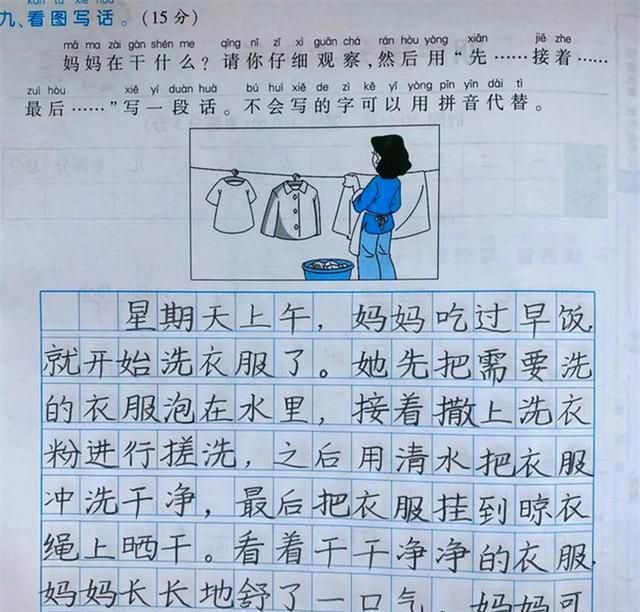 kàn tú xiě huà
九、看图写话。(15分)
mā ma zài gàn shén me qǐng nǐ zǐ xì guān chá rán hòu yòng xiān jiē zhe
妈妈在干什么?请你仔细观察,然后用“先……接着……
zuì hòu xiě yí duàn huà bú huì xiě de zì kě yǐ yòng pīn yīn dài tì
最后……”写一段话。不会写的字可以用拼音代替。
星期天上午,妈妈吃过早饭,
就开始洗衣服了。她先把需要洗
的衣服泡在水里,接着撒上洗衣
粉进行搓洗,之后用清水把衣服
冲洗干净,最后把衣服挂到晾衣
绳上晒干。看着干干净净的衣服,
妈妈长长地舒了一口气,妈妈可